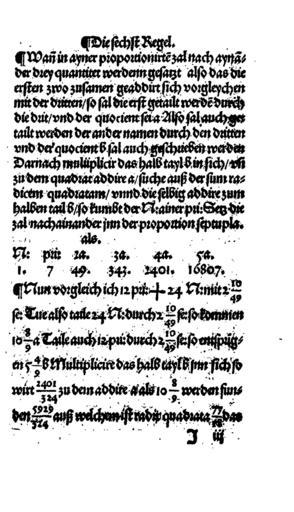 ¶Die sechst Regel.
¶Wañ in ayner proportionirte zal nach aynã-
der drey quantitet werdenn gesatzt also das die
ersten zwo zusamen geaddirt sich vorgleychen
mit der dritten/so sal die erst getailt werdẽ durch
die drit/vnd der quocient sei a Also sal auch ge
tailt werden der ander namen durch den dritten
vnd der quocient b sal auch geschrieben werden
Darnach multiplicir das halb tayl b in sich/vñ
zu dem quadrat addire a/suche auß der sum ra-
dicem quadratam/vnnd die selbig addire zum
halben tail b/so kumbt der N: ainer pri: Setz die
zal nacheinander jnn der proportion septupla.
als.
N: pri: 2a. 3a. 4a. 5a.
1. 7 49. 343. 2401. 16807.
¶Nun vorgleich ich 12 pri: + 24 N: mit 2 10/49
se: Tue also taile 24 N: durch 2 10/49 se: so kommen
10 8/9 a Taile auch 12 pri: durch 2 10/49 se: so entspring-
en 5 4/9 b Multiplicire das halb tayl b jnn sich so
wirt 2401/324 zu dem addire a als 10 8/9 werden fun-
den 5929/324 auß welchem ist radix quadrata 77/18 das
J iij